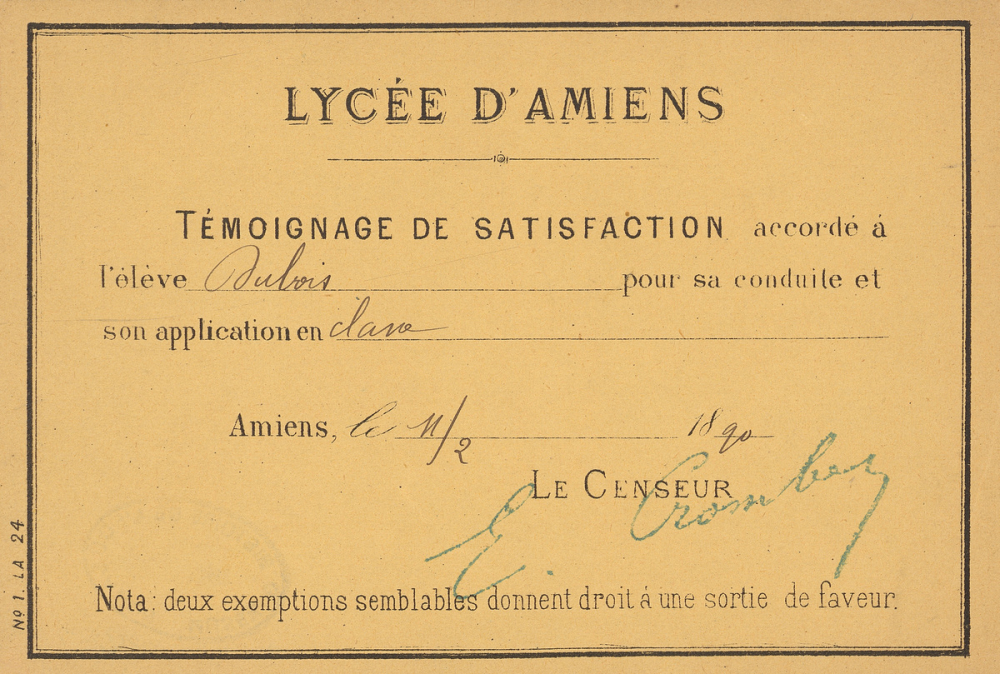 LYCÉE D'AMIENS
TÉMOIGNAGE DE SATISFACTION accordé á
l'élève Dubois pour sa conduite et
son application en classe
Amiens, le 11/2 1890
LE CENSEUR
E. Crombez
Nota: deux exemptions semblables donnent droit á une sortie de faveur.
Nº 1. LA 24